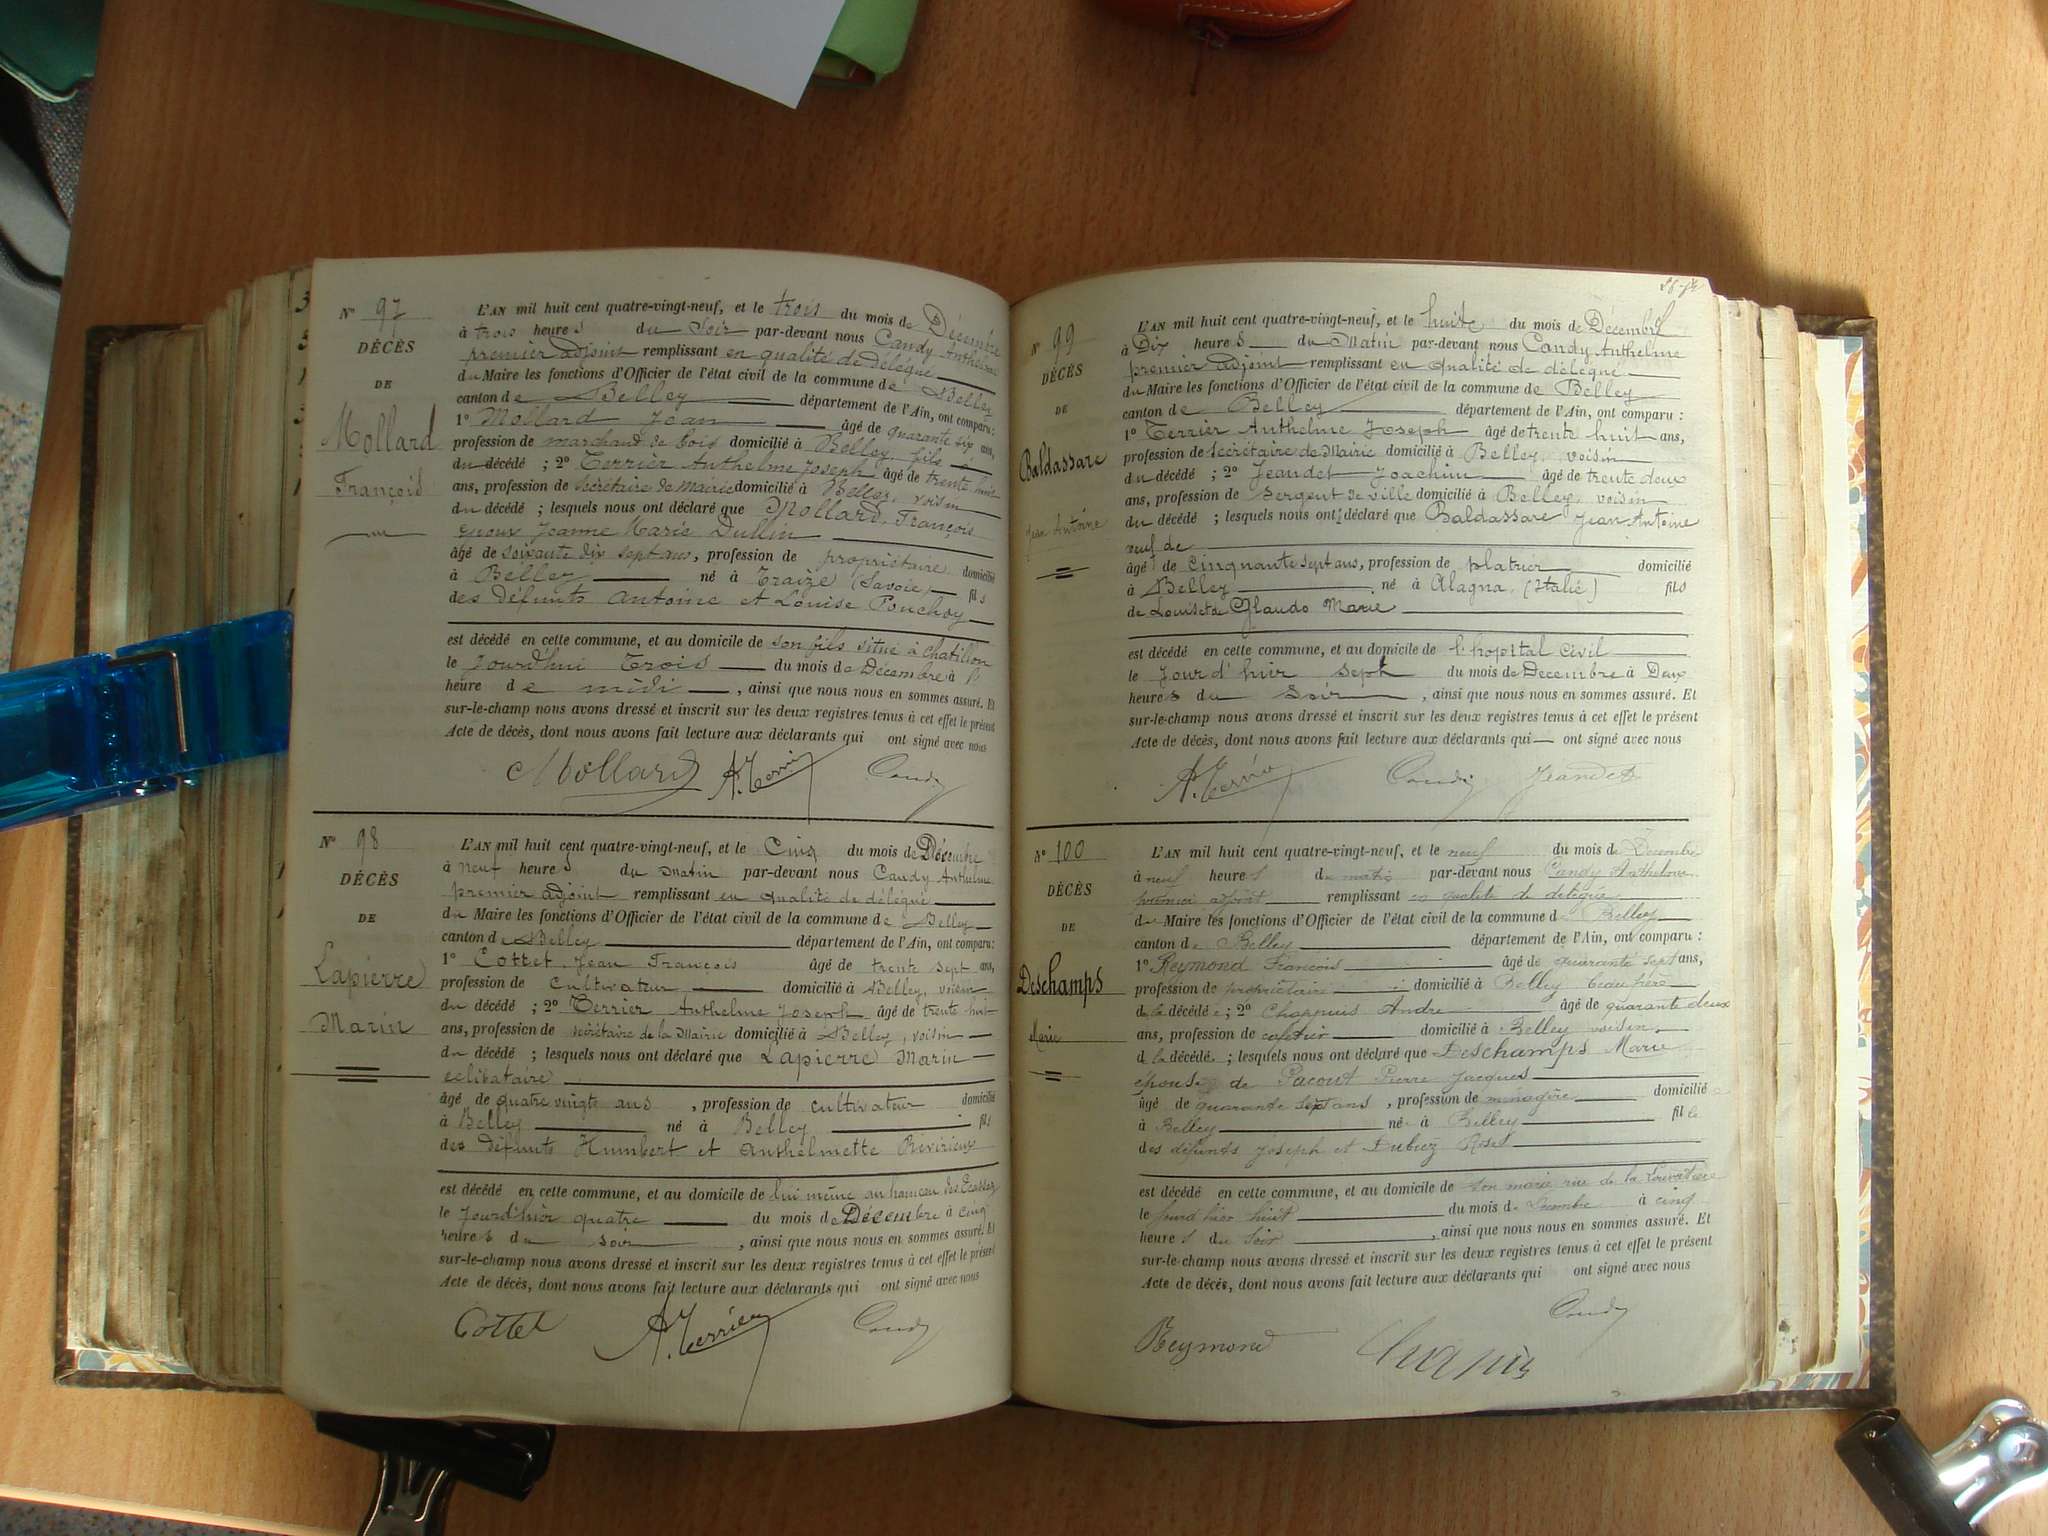 N° 97
DÉCÈS
DE
Mollard
François
L'AN mil huit cent quatre-vingt-neuf, et le trois du mois de Décembre
à trois heures du Soir par-devant nous Candy Anthelme
premier adjoint remplissant en qualité de délégué
du Maire les fonctions d'Officier de l'état civil de la commune de Belley
canton de Belley département de l'Ain, ont comparu :
1° Mollard Jean âgé de quarante six ans,
profession de marchand de bois domicilié à Belley, fils
du décédé ; 2° Terrier Anthelme Joseph âgé de trente huit
ans, profession de Secrétaire de Mairie domicilié à Belley, voisin
du décédé ; lesquels nous ont déclaré que Mollard, François
époux Jeanne Marie Dullin
âgé de soixante dix sept ans, profession de propriétaire domicilié
à Belley né à Traize (Savoie) fils
des défunts Antoine et Louise Pouchoy
est décédé en cette commune, et au domicile de son fils situé à Chatillon
le jourd'hui Trois du mois de Décembre à
heure de midi, ainsi que nous nous en sommes assuré. Et
sur-le-champ nous avons dressé et inscrit sur les deux registres tenus à cet effet le présent
Acte de décès, dont nous avons fait lecture aux déclarants qui ont signé avec nous
Mollard A. Terrier Candy
N° 98
DÉCÈS
DE
Lapierre
Marin
L'AN mil huit cent quatre-vingt-neuf, et le Cinq du mois de Décembre
à neuf heures du matin par-devant nous Candy Anthelme
premier adjoint remplissant en qualité de délégué
du Maire les fonctions d'Officier de l'état civil de la commune de Belley
canton de Belley département de l'Ain, ont comparu :
1° Cottet Jean François âgé de trente sept ans,
profession de cultivateur domicilié à Belley, voisin
du décédé ; 2° Terrier Anthelme Joseph âgé de trente huit
ans, profession de secrétaire de la Mairie domicilié à Belley, voisin
du décédé ; lesquels nous ont déclaré que Lapierre Marin
celibataire
âgé de quatre vingts ans, profession de cultivateur domicilié
à Belley né à Belley fils
des défunts Humbert et Anthelmette Revirieux
est décédé en cette commune, et au domicile de lui même au hameau des Ecassaz
le jourd'hier quatre du mois de Décembre à cinq
heures du soir, ainsi que nous nous en sommes assuré. Et
sur-le-champ nous avons dressé et inscrit sur les deux registres tenus à cet effet le présent
Acte de décès, dont nous avons fait lecture aux déclarants qui ont signé avec nous
Cottet A. Terrier Candy
N° 99
DÉCÈS
DE
Baldassare
Jean Antoine
L'AN mil huit cent quatre-vingt-neuf, et le huit du mois de Décembre
à Dix heures du Matin par-devant nous Candy Anthelme
premier adjoint remplissant en qualité de délégué
du Maire les fonctions d'Officier de l'état civil de la commune de Belley
canton de Belley département de l'Ain, ont comparu :
1° Terrier Anthelme Joseph âgé de trente huit ans,
profession de Secrétaire de Mairie domicilié à Belley, voisin
du décédé ; 2° Jeandet Joachim âgé de trente deux
ans, profession de Sergent de ville domicilié à Belley, voisin
du décédé ; lesquels nous ont déclaré que Baldassare Jean Antoine
veuf de
âgé de cinquante sept ans, profession de platrier domicilié
à Belley né à Alagna, (Italie) fils
de Louis et de Glaudo Marie
est décédé en cette commune, et au domicile de l'hopital Civil
le jour d'hier sept du mois de Décembre à Deux
heures du Soir, ainsi que nous nous en sommes assuré. Et
sur-le-champ nous avons dressé et inscrit sur les deux registres tenus à cet effet le présent
Acte de décès, dont nous avons fait lecture aux déclarants qui ont signé avec nous
A. Terrier Candy Jeandet
N° 100
DÉCÈS
DE
Deschamps
Marie
L'AN mil huit cent quatre-vingt-neuf, et le neuf du mois de Décembre
à neuf heures du matin par-devant nous Candy Anthelme
premier adjoint remplissant en qualité de délégué
du Maire les fonctions d'Officier de l'état civil de la commune de Belley
canton de Belley département de l'Ain, ont comparu :
1° Reymond François âgé de quarante sept ans,
profession de propriétaire domicilié à Belley beau frère
de la décédée ; 2° Chappuis André âgé de quarante deux
ans, profession de cafetier domicilié à Belley voisin
de la décédée ; lesquels nous ont déclaré que Deschamps Marie
épouse de Pacout Pierre Jacques
âgé de quarante sept ans, profession de ménagère domicilié
à Belley née à Belley fille
des défunts Joseph et Dubiez Rose
est décédé en cette commune, et au domicile de son marie rue de la
le jourd'hier huit du mois de Décembre à cinq
heures du soir, ainsi que nous nous en sommes assuré. Et
sur-le-champ nous avons dressé et inscrit sur les deux registres tenus à cet effet le présent
Acte de décès, dont nous avons fait lecture aux déclarants qui ont signé avec nous
Candy
Reymond